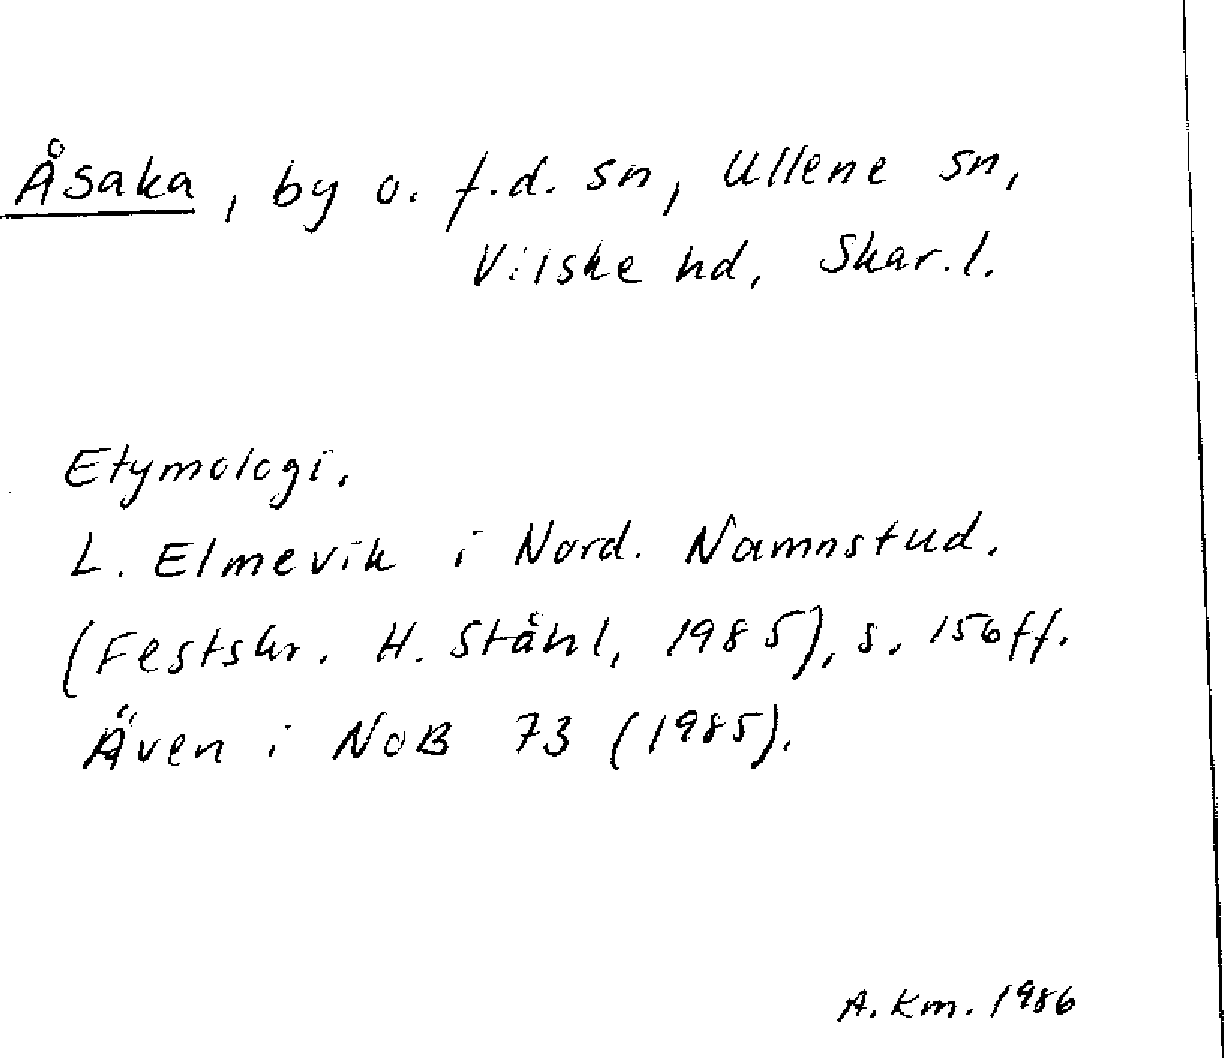 Åsaka, by o. f.d. sn, Ullene sn,
Vilske hd, Skar. l.
Etymologi.
L. Elmevik i Nord. Namnstud.
(Festskr. H. Ståhl, 1985), s. 156 ff.
Även i NoB 73 (1985).
A. Km. 1986